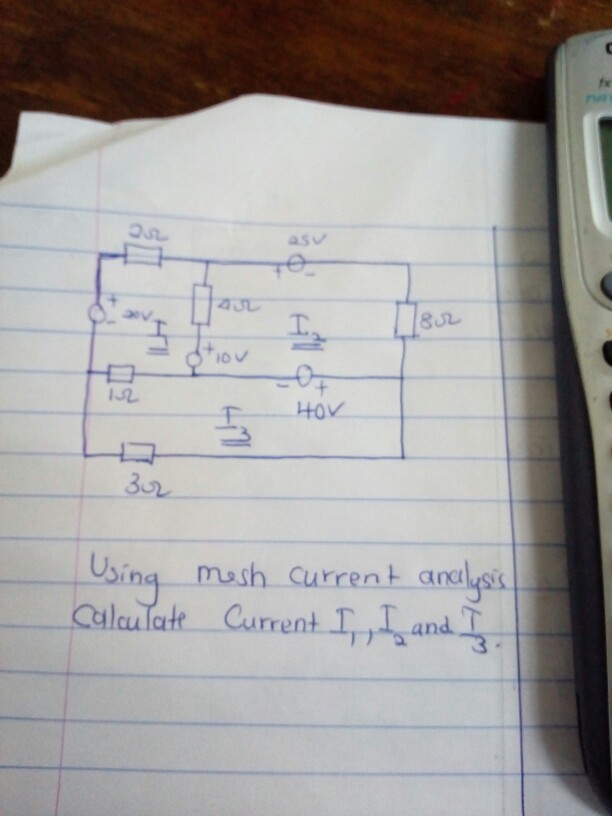 2Ω 25V
+ -
+ 20V 4Ω 8Ω
-
I I₂
+ 10V
1Ω - +
40V
I₃
3Ω
Using mesh current analysis
Calculate Current I₁, I₂ and I₃.
fx